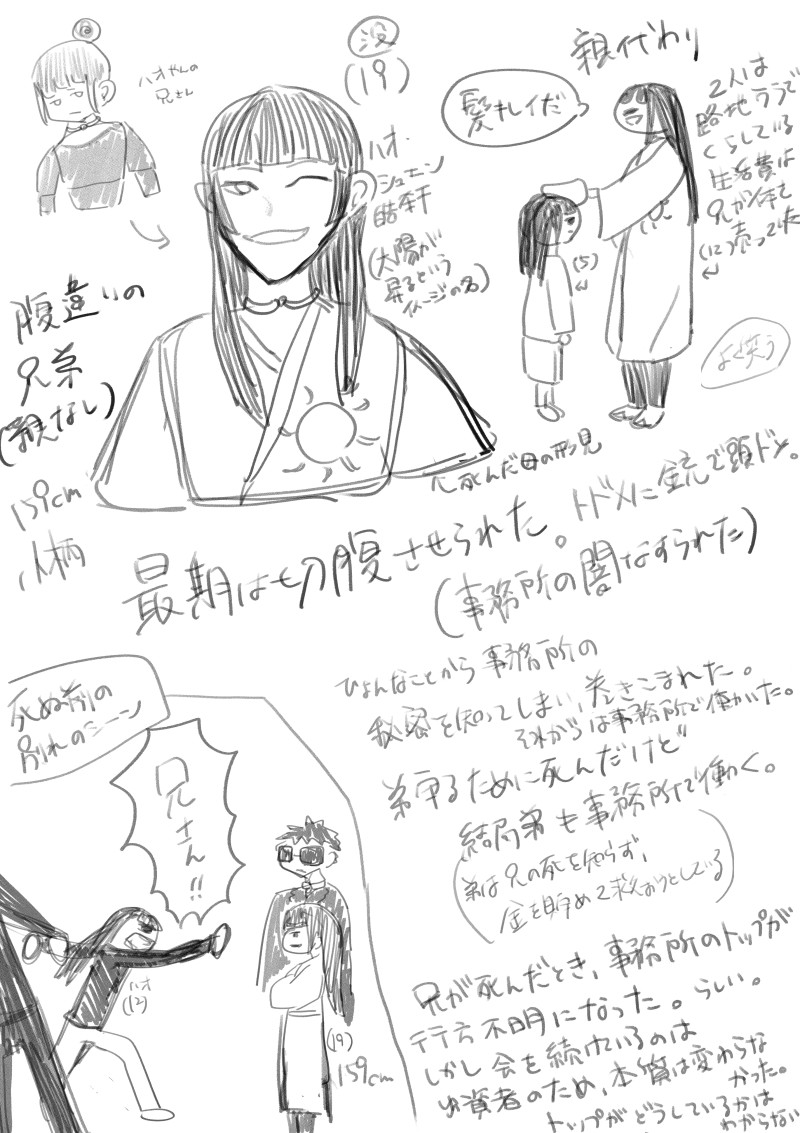 ハオやんの
兄さん
没
(19)
ハオ・
シュエン
皓軒
(太陽が
昇るという
イメージの名)
腹違いの
兄弟
(親なし)
159cm
小柄
親代わり
髪キレイだ
2人は
路地ウラで
くらしている
生活費は
兄が体を
売ってた
(12)
(5)
よく笑う
死んだ母の形見
最期は切腹させられた。トドメに銃で頭ドン。
(事務所の闇なすられた)
ひょんなことから事務所の
秘密を知ってしまい、巻きこまれた。
それからは事務所で働かいた。
弟守るために死んだけど
結局弟も事務所で働く。
(弟は兄の死を知らず、
金を貯めて救おうとしている)
死ぬ前の
別れのシーン
兄さん!!
ハオ
(12)
(19)
159cm
兄が死んだとき、事務所のトップが
行方不明になった。らしい。
しかし会を続けているのは
出資者のため、本質は変わらな
かった。
トップがどうしているかは
わからない